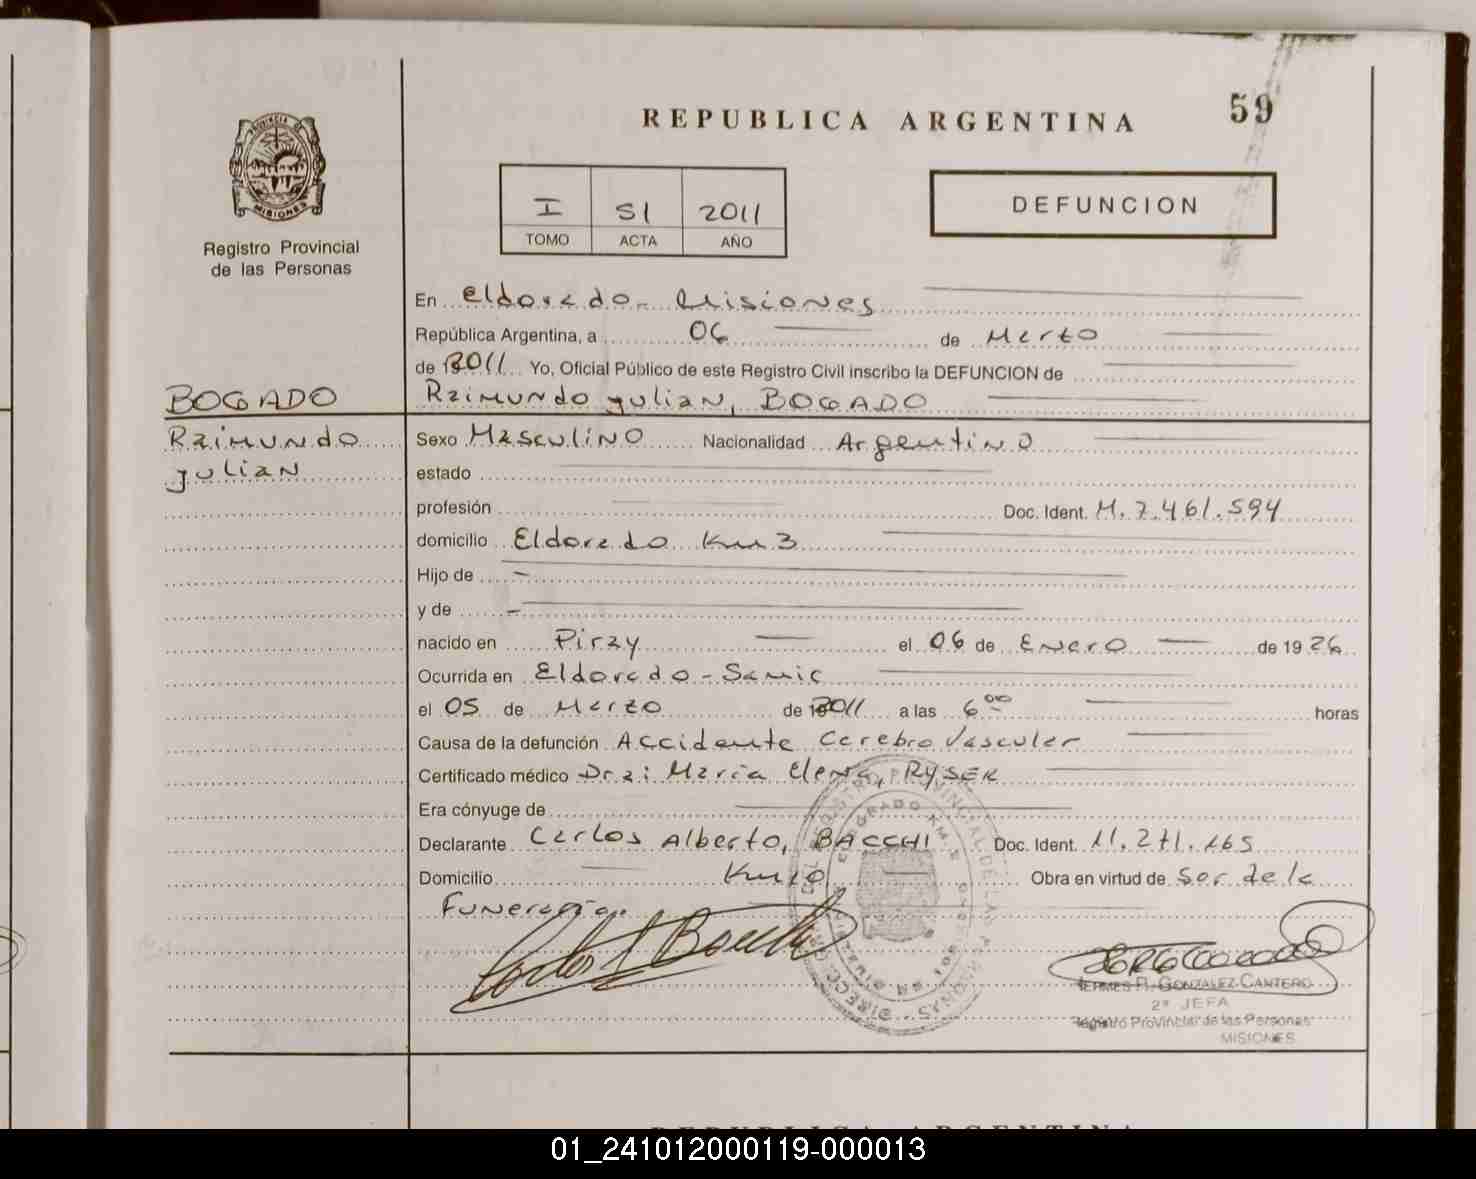 59
REPUBLICA ARGENTINA
PROVINCIA DE
MISIONES
Registro Provincial
de las Personas
I 51 2011
TOMO ACTA AÑO
DEFUNCION
En Eldorado - Misiones
República Argentina, a 06 de Marzo
de 2011 Yo, Oficial Público de este Registro Civil inscribo la DEFUNCION de
BOGADO Raimundo Julian, BOGADO
Raimundo Sexo Masculino Nacionalidad Argentino
Julian estado
profesión Doc. Ident. M. 7.461.594
domicilio Eldorado Km 3
Hijo de -
y de -
nacido en Piray el 06 de Enero de 1926
Ocurrida en Eldorado - Samic
el 05 de Marzo de 2011 a las 6 00 horas
Causa de la defunción Accidente Cerebro Vascular
Certificado médico Dra: Maria Elena, RYSER
Era cónyuge de
Declarante Carlos Alberto, BACCHI Doc. Ident. 11.271.165
Domicilio Km 10 Obra en virtud de Ser de la
Funeraria.
HERMES R. GONZALEZ CANTERO
2ª JEFA
Registro Provincial de las Personas
MISIONES
REPUBLICA ARGENTINA
01_241012000119-000013